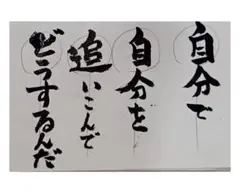 自分で
自分を
追いこんで
どうするんだ